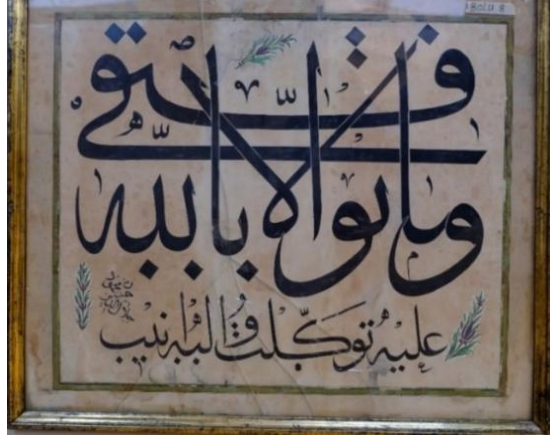 BOLU 8
وما توفيقي إلا بالله
عليه توكلت وإليه أنيب